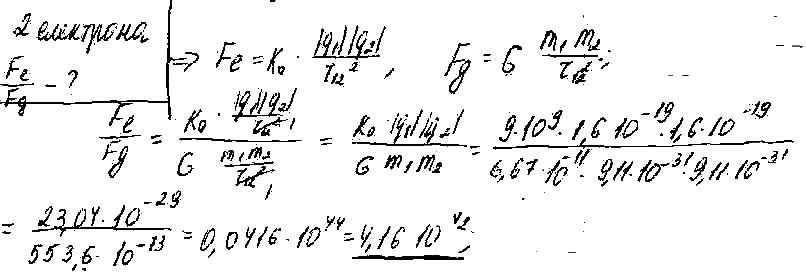 2 електрона
Fe/Fg - ?
⇒ Fe = K₀ · |q₁||q₂| / r₁₂², Fg = G m₁ m₂ / r₁₂²;
Fe/Fg = (K₀ · |q₁||q₂| / r₁₂²) / (G m₁m₂ / r₁₂²) = K₀ · |q₁||q₂| / G m₁ m₂ = 9·10⁹·1,6·10⁻¹⁹·1,6·10⁻¹⁹ / 6,67·10⁻¹¹·9,11·10⁻³¹·9,11·10⁻³¹
= 23,04·10⁻²⁹ / 553,6·10⁻⁷³ = 0,0416·10⁴⁴ = 4,16·10⁴²;